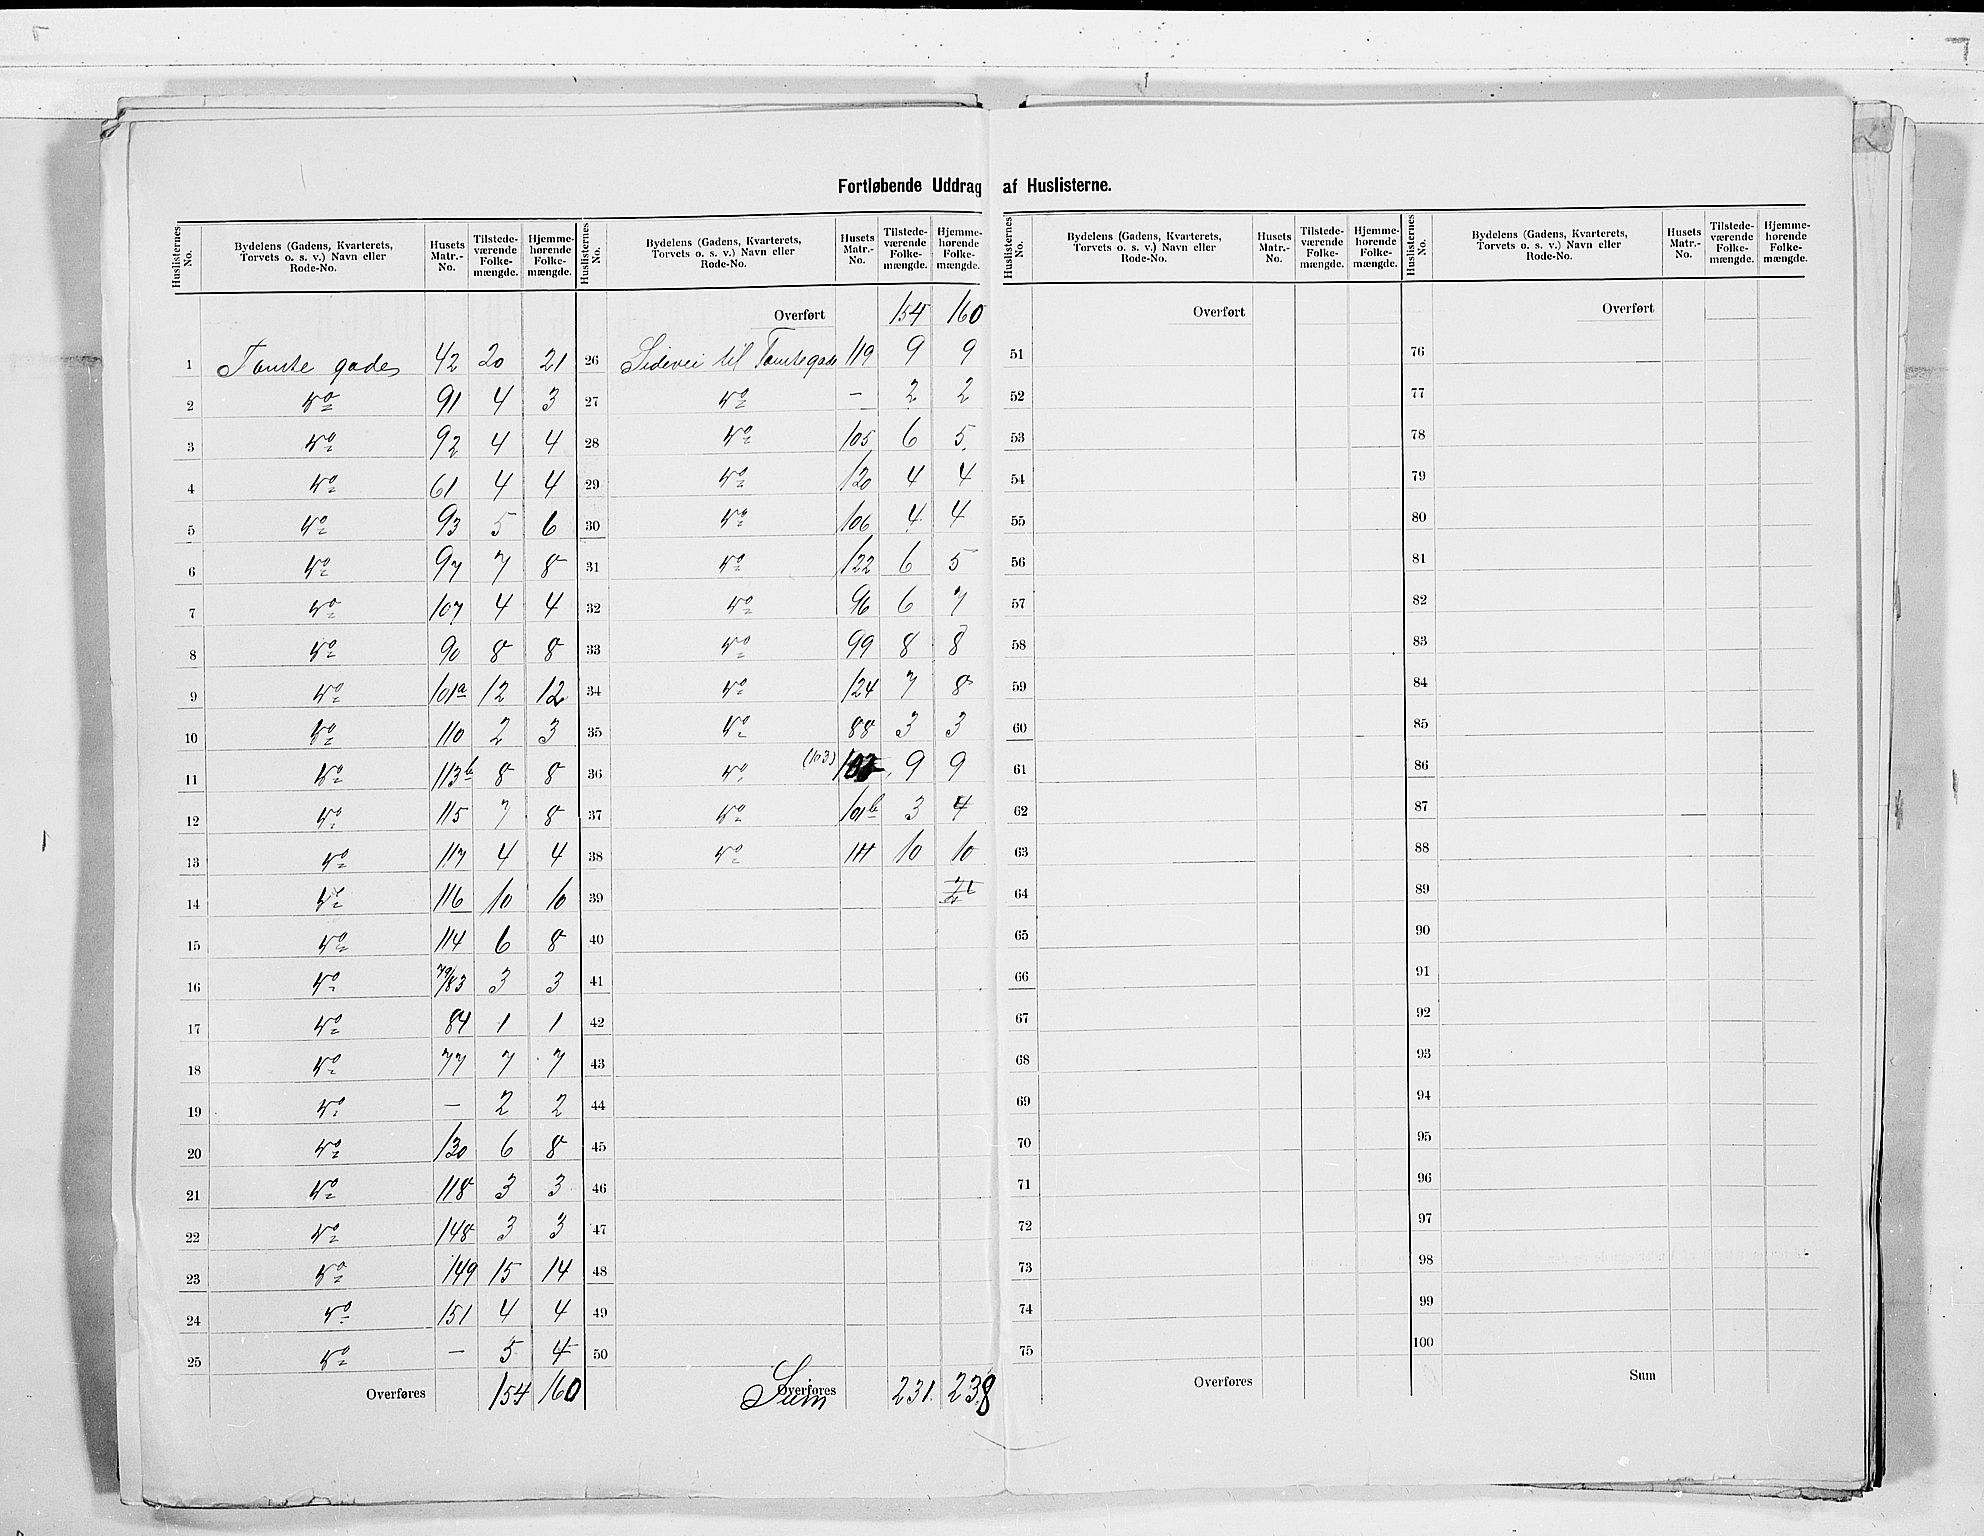 Fortløbende Uddrag af Huslisterne.
Huslisternes No. | Bydelens (Gadens, Kvarterets, Torvets o. s. v.) Navn eller Rode-No. | Husets Matr.-No. | Tilstedeværende Folkemængde. | Hjemmehørende Folkemængde. | Huslisternes No. | Bydelens (Gadens, Kvarterets, Torvets o. s. v.) Navn eller Rode-No. | Husets Matr.-No. | Tilstedeværende Folkemængde. | Hjemmehørende Folkemængde. | Huslisternes No. | Bydelens (Gadens, Kvarterets, Torvets o. s. v.) Navn eller Rode-No. | Husets Matr.-No. | Tilstedeværende Folkemængde. | Hjemmehørende Folkemængde. | Huslisternes No. | Bydelens (Gadens, Kvarterets, Torvets o. s. v.) Navn eller Rode-No. | Husets Matr.-No. | Tilstedeværende Folkemængde. | Hjemmehørende Folkemængde.
Overført 154 160 Overført Overført
1 Tomtegaden 42 20 21 26 Sidevei til Tomtegade 119 9 9 51 76
2 Do 91 4 3 27 Do — 2 2 52 77
3 Do 92 4 4 28 Do 105 6 5 53 78
4 Do 61 4 4 29 Do 120 4 4 54 79
5 Do 93 5 6 30 Do 106 4 4 55 80
6 Do 97 7 8 31 Do 122 6 5 56 81
7 Do 107 4 4 32 Do 96 6 7 57 82
8 Do 90 8 8 33 Do 99 8 8 58 83
9 Do 101a 12 12 34 Do 124 7 8 59 84
10 Do 110 2 3 35 Do 88 3 3 60 85
11 Do 113b 8 8 36 Do (103) 9 9 61 86
12 Do 115 7 8 37 Do 101b 3 4 62 87
13 Do 117 4 4 38 Do 111 10 10 63 88
14 Do 116 10 10 39 64 89
15 Do 114 6 8 40 65 90
16 Do 79/83 3 3 41 66 91
17 Do 84 1 1 42 67 92
18 Do 77 7 7 43 68 93
19 Do — 2 2 44 69 94
20 Do 130 6 8 45 70 95
21 Do 118 3 3 46 71 96
22 Do 148 3 3 47 72 97
23 Do 149 15 14 48 73 98
24 Do 151 4 4 49 74 99
25 Do — 5 4 50 75 100
Overføres 154 160 Overføres Sum 231 238 Overføres Sum